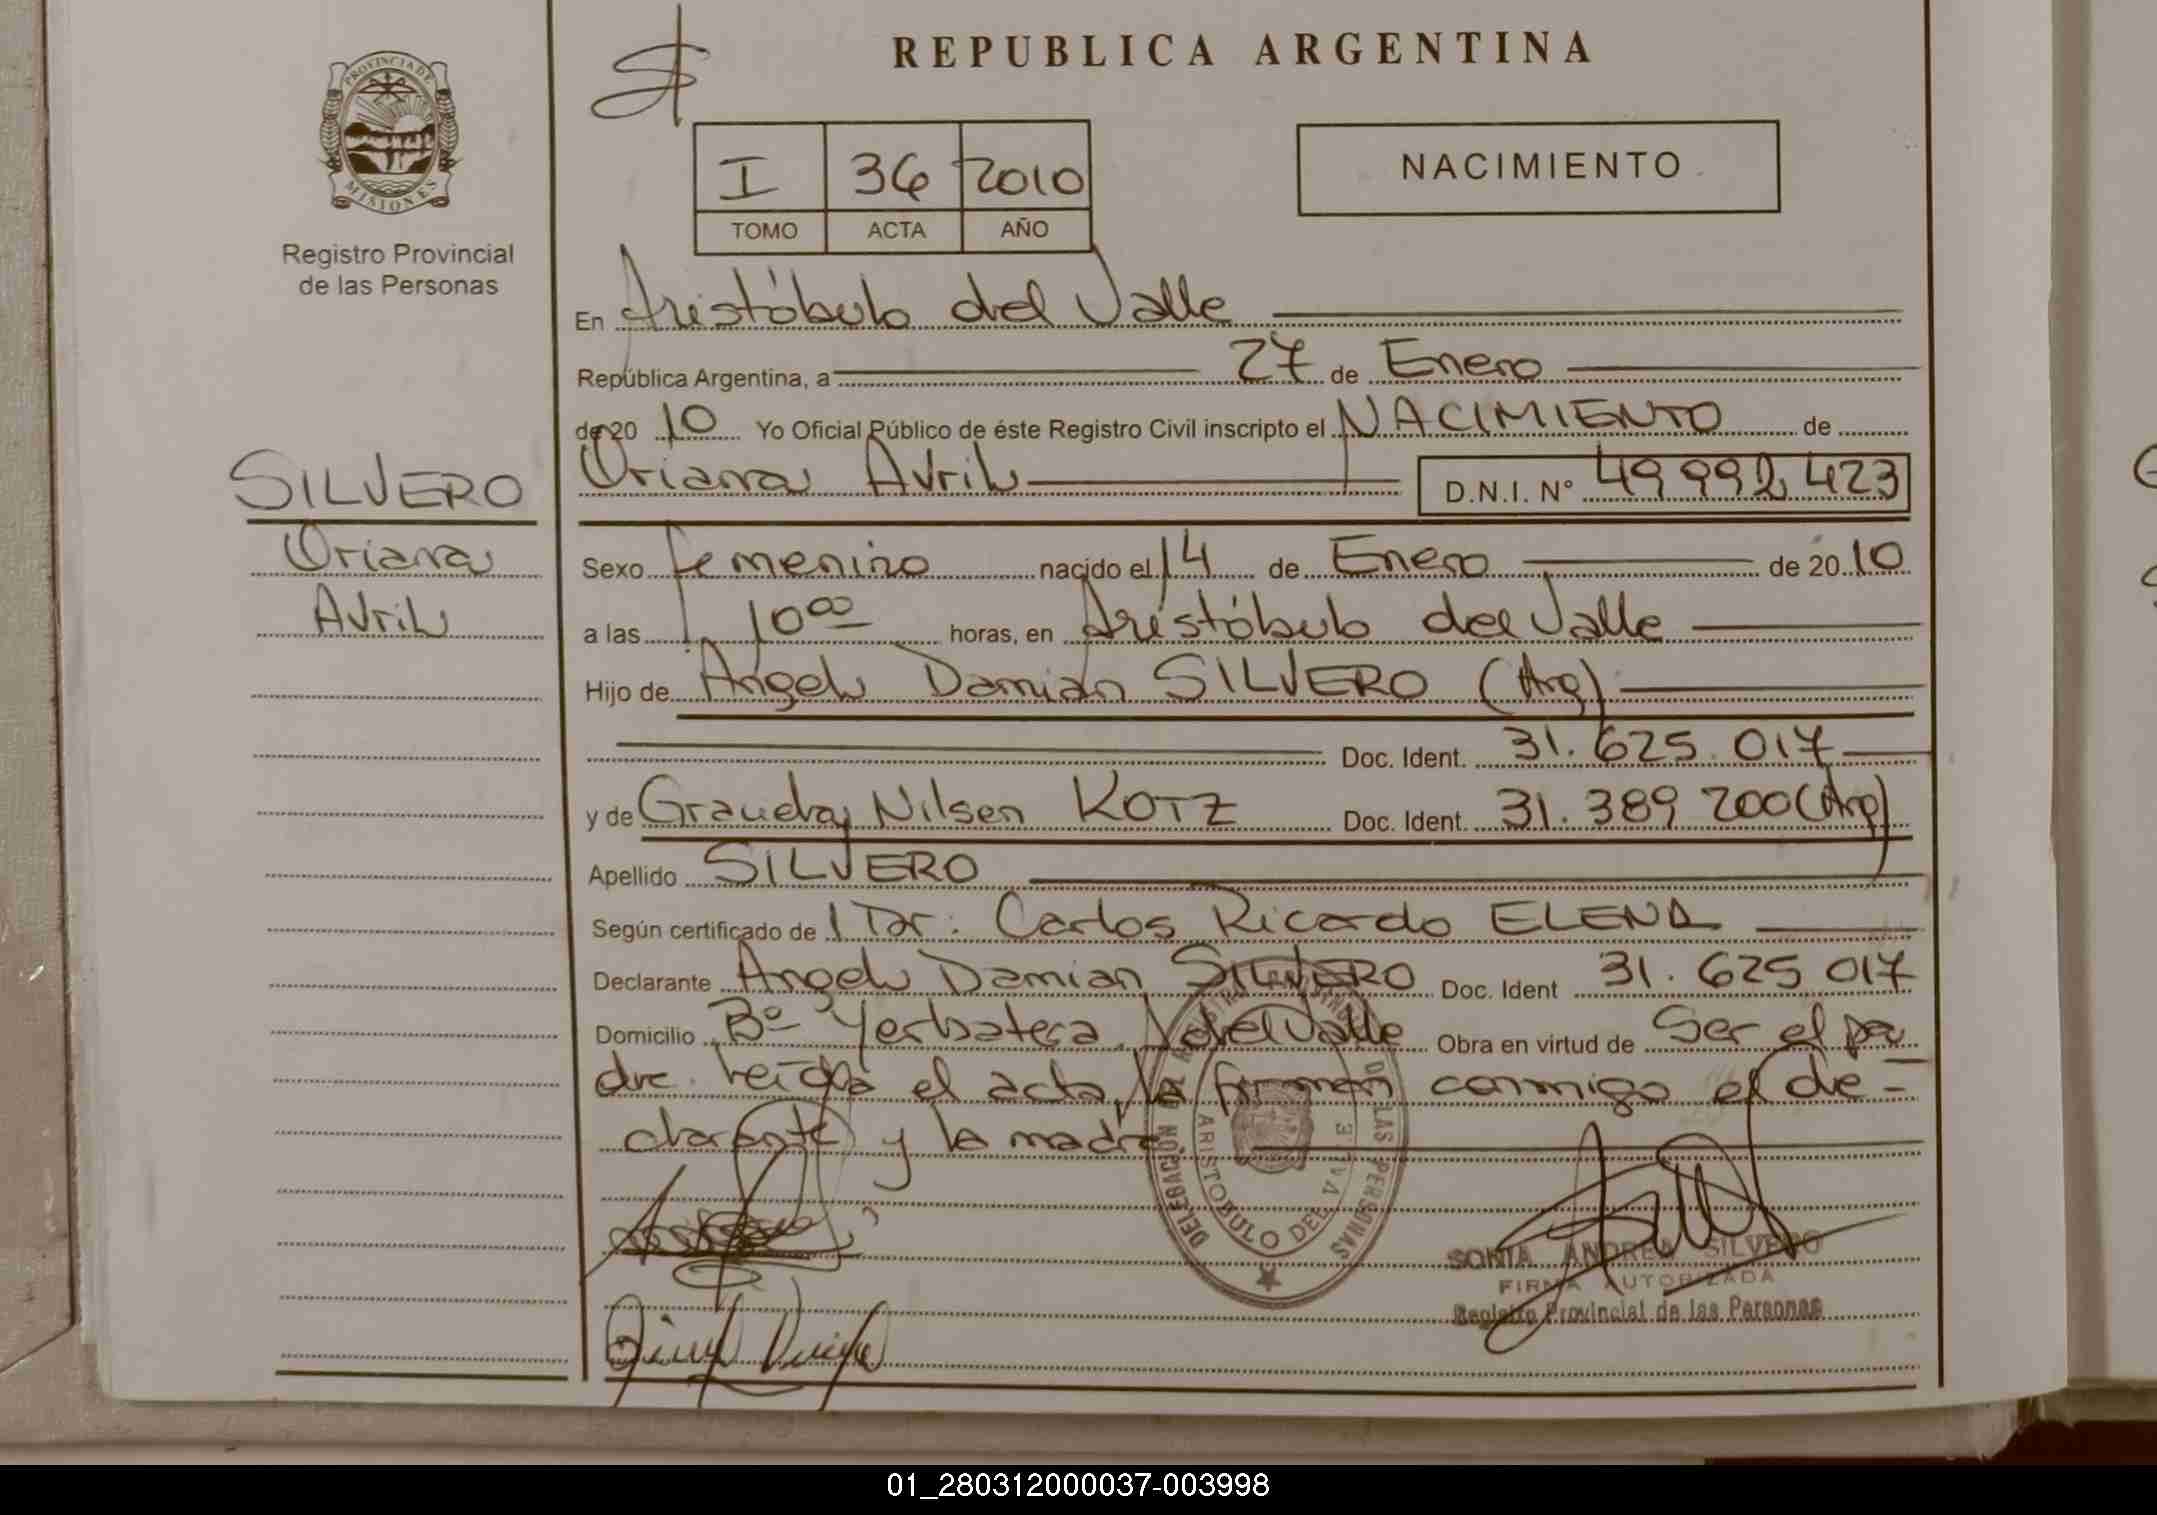 REPUBLICA ARGENTINA
PROVINCIA DE MISIONES
Registro Provincial
de las Personas
I 36 2010
TOMO ACTA AÑO
NACIMIENTO
En Aristóbulo del Valle
República Argentina, a 27 de Enero
de 20 10 Yo Oficial Público de éste Registro Civil inscripto el NACIMIENTO de
Oriana Avril D.N.I. Nº 49 992 423
SILVERO
Oriana
Avril
Sexo femenino nacido el 14 de Enero de 20 10
a las 10 00 horas, en Aristóbulo del Valle
Hijo de Angel Damián SILVERO (Arg)
Doc. Ident. 31.625.017
y de Nilsen KOTZ Doc. Ident. 31.389 200 (Arg)
Apellido SILVERO
Según certificado de l Dr. Carlos Ricardo ELENA
Declarante Angel Damian SILVERO Doc. Ident 31.625 017
Domicilio Bº Yerbatera. A del Valle Obra en virtud de Ser el pa
dre. leída el acta, la firman conmigo el de-
clarante y la madre
DELEGACIÓN DE LAS PERSONAS
ARISTOBULO DEL VALLE
SONIA ANDREA SILVERO
FIRMA AUTORIZADA
Registro Provincial de las Personas
01_280312000037-003998